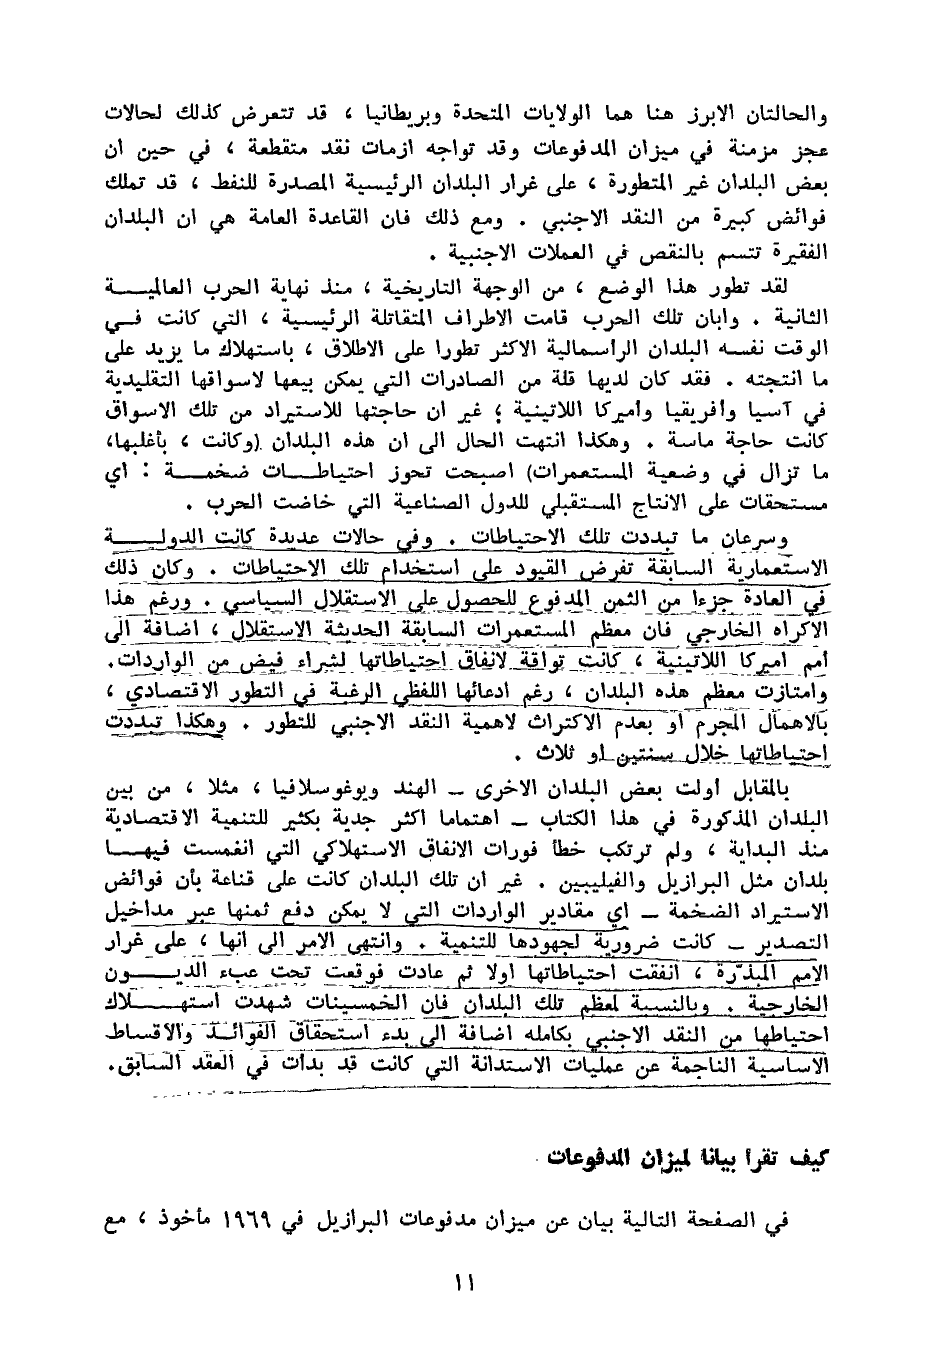 والحالتان الابرز هنا هما الولايات المتحدة وبريطانيا ، قد تتعرض كذلك لحالات
عجز مزمنة في ميزان المدفوعات وقد تواجه ازمات نقد متقطعة ، في حين ان
بعض البلدان غير المتطورة ، على غرار البلدان الرئيسية المصدرة للنفط ، قد تملك
فوائض كبيرة من النقد الاجنبي . ومع ذلك فان القاعدة العامة هي ان البلدان
الفقيرة تتسم بالنقص في العملات الاجنبية .
لقد تطور هذا الوضع ، من الوجهة التاريخية ، منذ نهاية الحرب العالميـــة
الثانية . وابان تلك الحرب قامت الاطراف المتقاتلة الرئيسية ، التي كانت فــي
الوقت نفسه البلدان الرأسمالية الاكثر تطورا على الاطلاق ، باستهلاك ما يزيد على
ما انتجته . فقد كان لديها قلة من الصادرات التي يمكن بيعها لاسواقها التقليدية
في آسيا وأفريقيا وأميركا اللاتينية ؛ غير ان حاجتها للاستيراد من تلك الاسواق
كانت حاجة ماسة . وهكذا انتهت الحال الى ان هذه البلدان (وكانت ، بأغلبها،
ما تزال في وضعية المستعمرات) اصبحت تحوز احتياطـــات ضخمـــة : اي
مستحقات على الانتاج المستقبلي للدول الصناعية التي خاضت الحرب .
وسرعان ما تبددت تلك الاحتياطات . وفي حالات عديدة كانت الدولـــة
الاستعمارية السابقة تفرض القيود على استخدام تلك الاحتياطات . وكان ذلك
في العادة جزءا من الثمن المدفوع للحصول على الاستقلال السياسي . ورغم هذا
الاكراه الخارجي فان معظم المستعمرات السابقة الحديثة الاستقلال ، اضافة الى
أمم اميركا اللاتينية ، كانت تواقة لانفاق احتياطاتها لشراء فيض من الواردات.
وامتازت معظم هذه البلدان ، رغم ادعائها اللفظي الرغبة في التطور الاقتصادي ،
بالاهمال المجرم او بعدم الاكتراث لاهمية النقد الاجنبي للتطور . وهكذا تبددت
احتياطاتها خلال سنتين او ثلاث .
بالمقابل أولت بعض البلدان الاخرى ــ الهند ويوغوسلافيا ، مثلا ، من بين
البلدان المذكورة في هذا الكتاب ــ اهتماما اكثر جدية بكثير للتنمية الاقتصادية
منذ البداية ، ولم ترتكب خطأ فورات الانفاق الاستهلاكي التي انغمست فيهـــا
بلدان مثل البرازيل والفيليبين . غير ان تلك البلدان كانت على قناعة بأن فوائض
الاستيراد الضخمة ــ اي مقادير الواردات التي لا يمكن دفع ثمنها عبر مداخيل
التصدير ــ كانت ضرورية لجهودها للتنمية . وانتهى الامر الى انها ، على غرار
الامم المبذّرة ، انفقت احتياطاتها اولا ثم عادت فوقعت تحت عبء الديـــون
الخارجية . وبالنسبة لمعظم تلك البلدان فان الخمسينات شهدت استهـــلاك
احتياطها من النقد الاجنبي بكامله اضافة الى بدء استحقاق الفوائد والاقساط
الاساسية الناجمة عن عمليات الاستدانة التي كانت قد بدأت في العقد السابق.
كيف تقرأ بيانا لميزان المدفوعات
في الصفحة التالية بيان عن ميزان مدفوعات البرازيل في ١٩٦٩ مأخوذ ، مع
١١